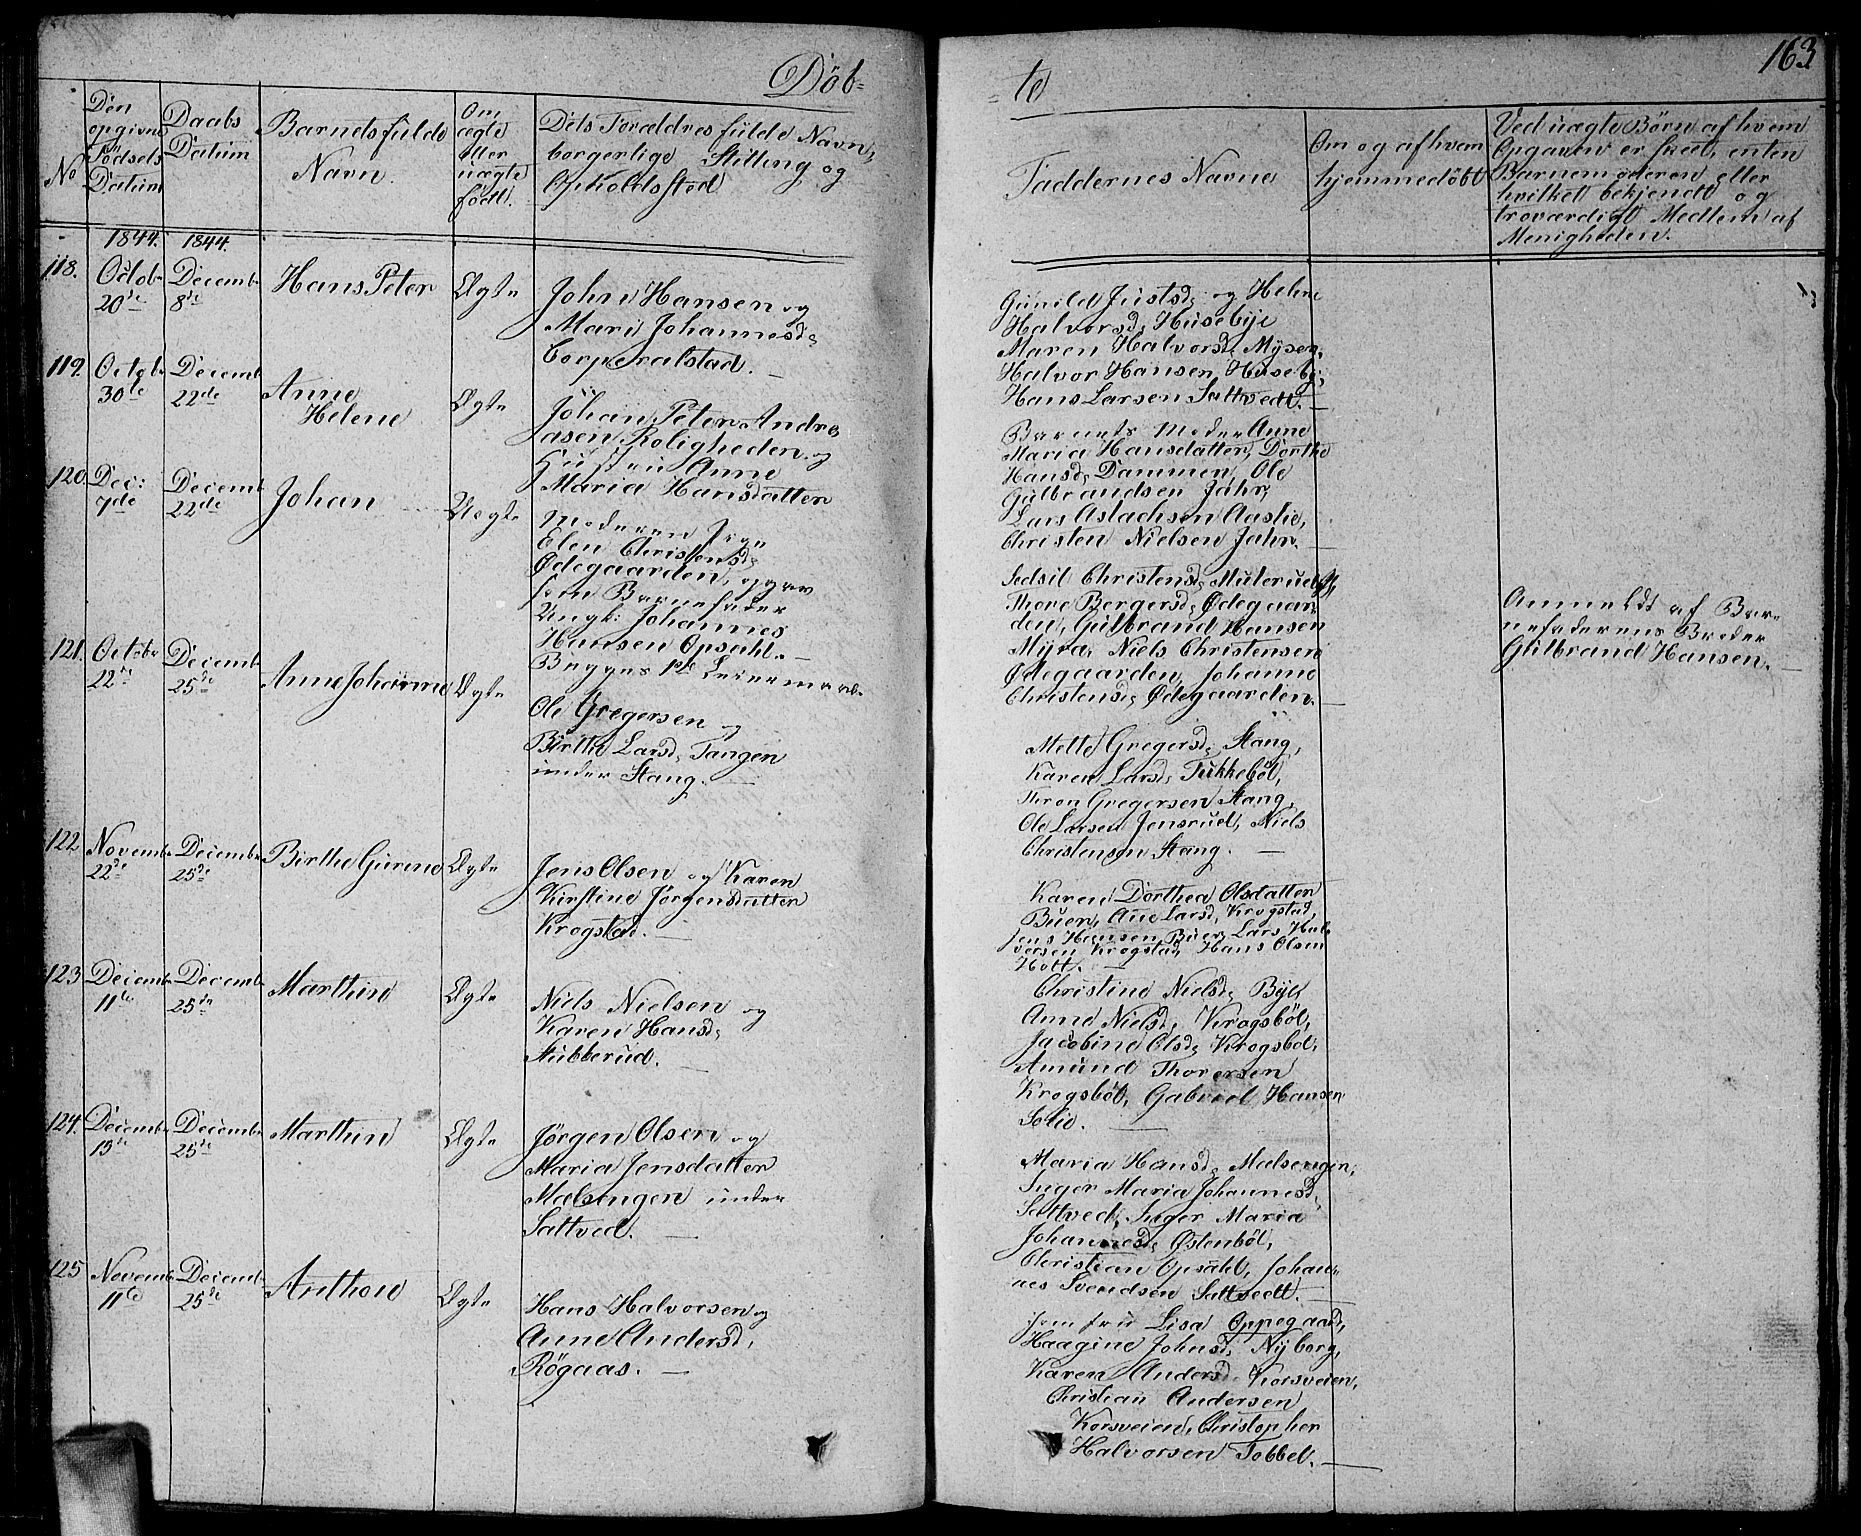 Döb-
-te
163
No
Den opgivne Födsels Datum
Daabs Datum
Barnets fulde Navn.
Om ægte eller uægte födt.
Dets Forældres fulde Navn, borgerlige Stilling og Opholdssted
Faddernes Navne
Om og af hvem hjemmedöbt
Ved uægte Börn af hvem Opgaven er skeet, enten Barnemoderen eller hvilket bekjendt og troværdigt Medlem af Menigheden.
1844. 1844.
118.
Octob. 20de
Decemb 8de
Hans Peter
Ægte
John Hansen og
Mari Johannesd;
Corperalstad.
Gunild Justsd; og Helene
Halvorsd; Husebye
Maren Halvorsd; Mysen,
Halvor Hansen, Huseby,
Hans Larsen Sattvedt.
119.
Octob. 30te
Decemb 22de
Anne
Helene
Ægte
Johan Peter Andre
asen Roligheden og
Hustru Anne
Maria Hansdatter
Barnets Moder Anne
Maria Hansdatter, Dorthe
Hansd; Dammen, Ole
Gulbrandsen Jahr,
Lars Aslachsen Aaslie,
Christen Nielsen Jahr.
120.
Dec: 7de
Decemb 22de
Johan
Uægte
Moderen Pige
Elen Christensd;
Ødegaarden, opgav
som Barnefader
Ungk: Johannes
Hansen Opsahl.
Begges 1ste Leiermaal.
Sedsil Christensd; Muterud,
Thore Bergersd; Ødegaar
den, Gulbrand Hansen
Myra, Niels Christensen
Ødegaarden, Johanne
Christensd; Ødegaarden.
Anmeldt af Bar
nefaderens Broder
Gulbrand Hansen.
121.
Octobr 22de
Decemb 25de
Anne Johanne
Ægte
Ole Gregersen og
Birthe Larsd; Tangen
under Stang.
Mette Gregersd; Stang,
Karen Larsd; Tukkeböl,
Thron Gregersen Stang,
Ole Larsen Jensrud, Niels
Christensen Stang.
122
Novemb 22de
Decemb 25de
Birthe Gurine
Ægte
Jens Olsen og Karen
Kirstine Jörgensdatter
Krogstad.
Karen Dorthea Olsdatter
Buer, Ane Larsd, Krogstad,
Jens Hansen Buer, Lars Hal
vorsen Krogstad, Hans Olsen
Holt.
123
Decemb 11te
Decemb 25de
Marthin
Ægte
Niels Nielsen og
Karen Hansd;
Stubberud.
Christine Nielsd; Bye,
Anne Nielsd; Krogsböl,
Jacobine Olsd; Krogsböl,
Amund Thoresen
Krogsböl, Gabriel Hansen
Solie.
124.
Decemb 15de
Decemb 25de
Marthin
Ægte
Jörgen Olsen og
Maria Jensdatter
Mælsengen under
Sattved.
Maria Hansd; Mælsengen,
Inger Maria Johannesd,
Sattved, Inger Maria
Johannesd; Østenböl,
Christian Opsahl, Johan
nes Svendsen Sattvedt.
125
Novemb 11te
Decemb 25de
Anthon
Ægte
Hans Halvorsen og
Anne Andersd,
Rögaas.
Jomfru Lisa Oppegaard,
Haagine Johnsd; Nyborg,
Karen Andersd; Korsveien,
Christian Andersen
Korsveien, Christopher
Halvorsen Tobbel.